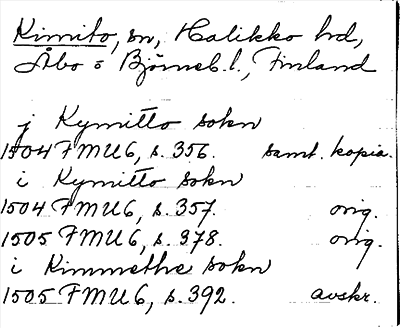 Kimito, sn, Halikko hd,
Åbo o Björneb. l., Finland
j Kymitto sokn
1504 FMU6, s. 356. samt. kopia.
i Kymitto sokn
1504 FMU6, s. 357. orig.
1505 FMU6, s. 378. orig.
i Kimmethe sokn
1505 FMU6, s. 392. avskr.